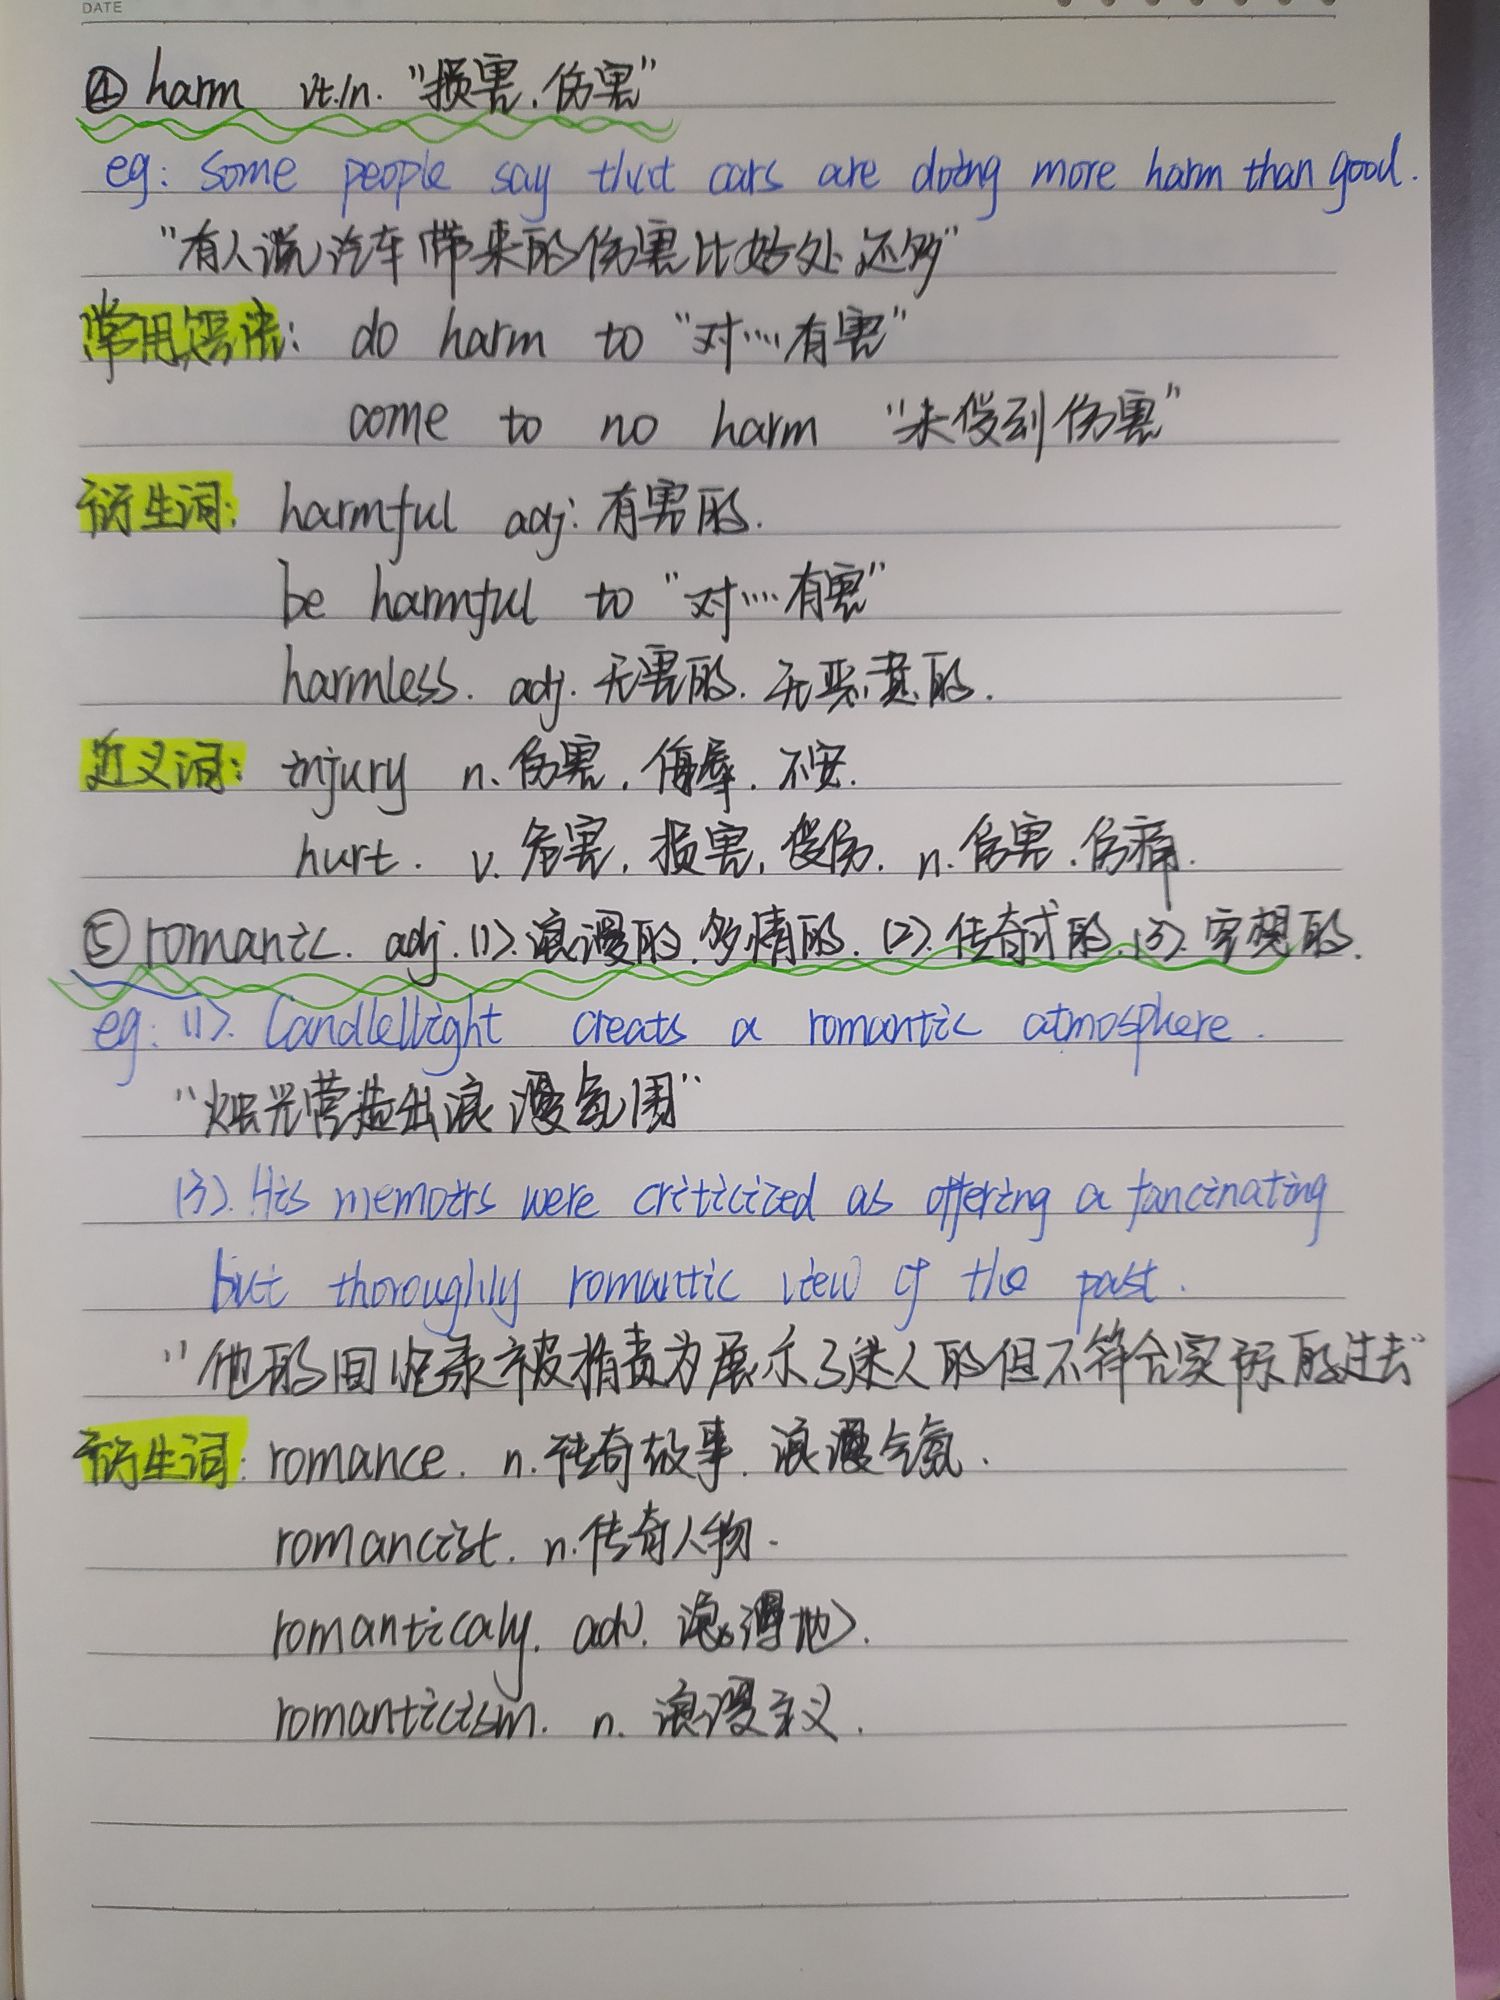 DATE
④ harm vt./n. "损害、伤害"
eg: Some people say that cars are doing more harm than good.
"有人说汽车带来的伤害比好处还多"
常用短语: do harm to "对……有害"
come to no harm "未受到伤害"
衍生词: harmful adj. 有害的.
be harmful to "对……有害"
harmless. adj. 无害的. 无恶意的.
近义词: injury n. 伤害, 侮辱, 不安.
hurt. v. 危害, 损害, 受伤. n. 伤害. 伤痛.
⑤ romantic. adj. (1). 浪漫的, 多情的. (2). 传奇式的. (3). 空想的.
eg: (1). Candlellight creats a romantic atmosphere.
"烛光营造出浪漫氛围"
(3). His memoirs were criticized as offering a fancinating
but thoroughly romantic view of the past.
"他的回忆录被指责为展示了迷人的但不符合实际的过去"
衍生词: romance. n. 传奇故事. 浪漫气氛.
romancist. n. 传奇人物.
romanticaly. adv. 浪漫地.
romanticism. n. 浪漫主义.